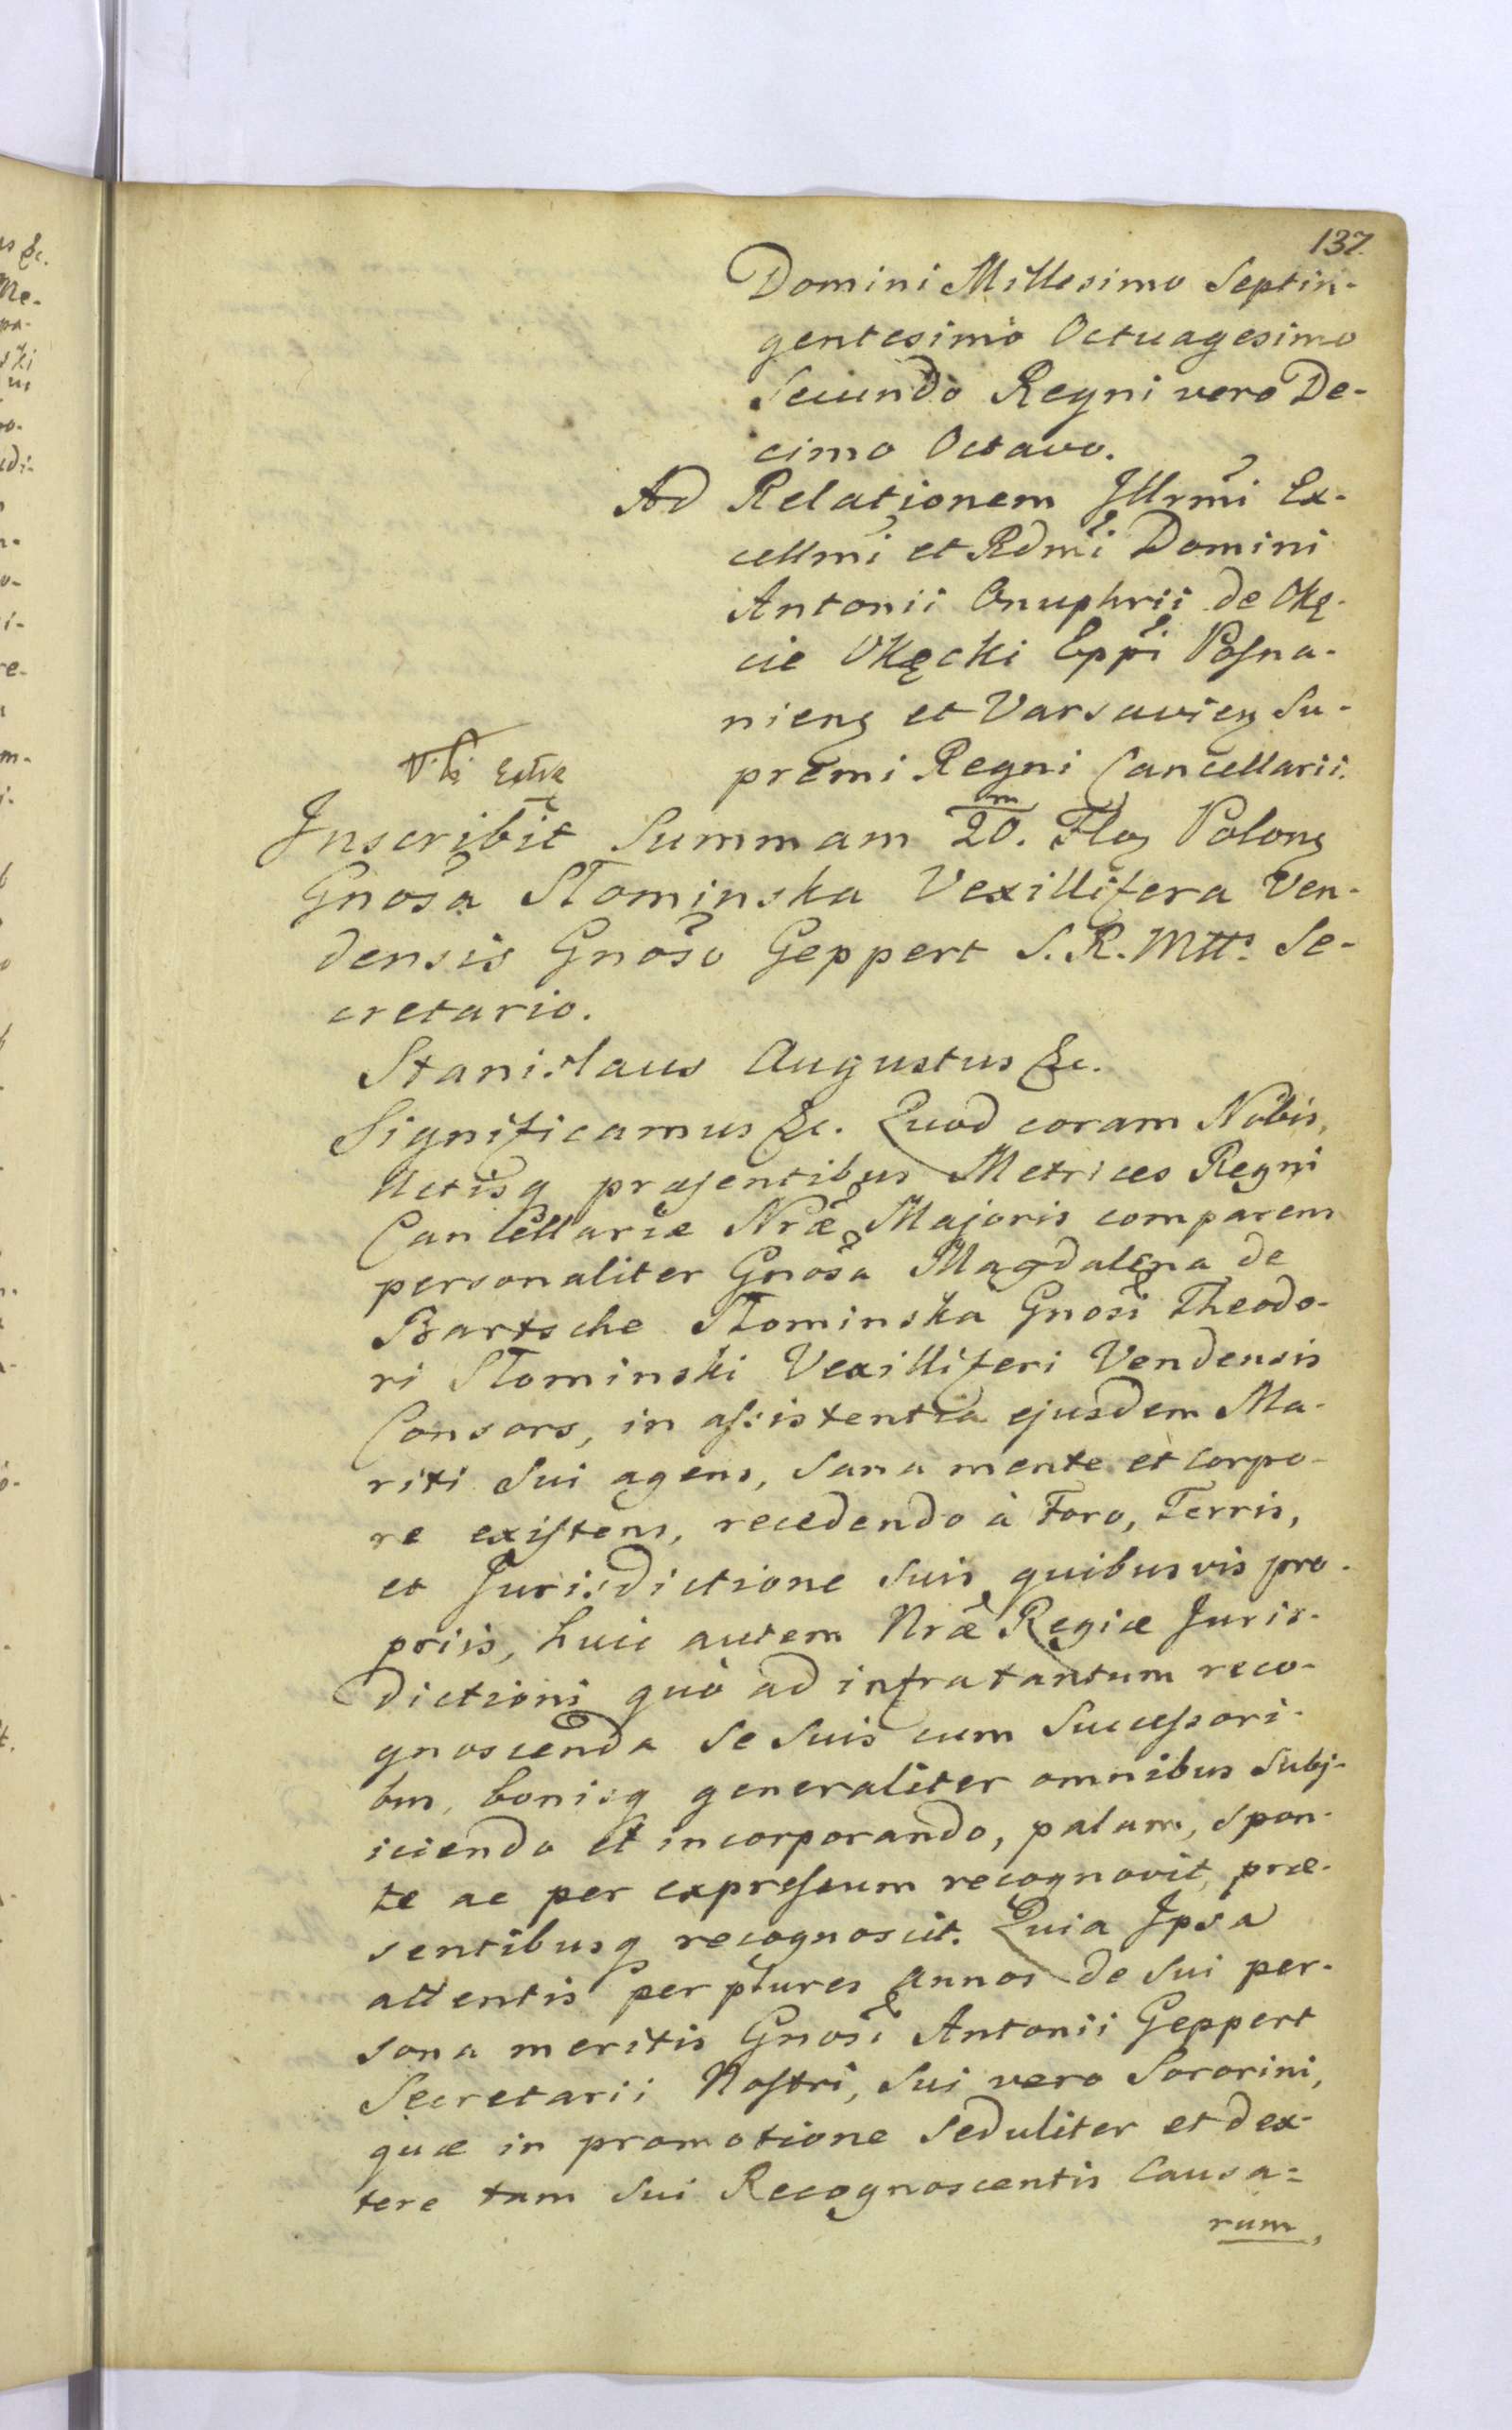 137.
Domini Millesimo Septin-
gentesimo Octuagesimo
Secundo Regni vero De-
cimo Octavo.
Ad Relationem Illrmi Ex-
cellmi et Rdmi Domini
Antonii Onuphrii de Okę-
cie Okęcki Eppi Posna-
nieng et Varsavieng Su-
premi Regni Cancellarii.
Inscribit Summam 20.m Flog Polong
Gnosa Słominska Vexillifera Ven-
densis Gnoso Geppert S. R. Mtts Se-
cretario.
Stanislaus Augustus &c.
Significamus &c. Quod coram Nobis,
Actisq præsentibus Metrices Regni
Cancellariæ Nræ Majoris comparens
personaliter Gnosa Magdalena de
Bartsche Słominska Gnosi Theodo-
ri Słominski Vexilliferi Vendensis
Consors, in assistentia ejusdem Ma-
riti Sui agens, sana mente et corpo-
re existens, recedendo à Foro, Terris,
et Jurisdictione suis quibusvis pro-
priis, huic autem Nræ Regiæ Juris-
dictioni quò ad infra tantum reco-
gnoscenda se suis cum Successori-
bus, bonisq generaliter omnibus Subj-
iciendo et incorporando, palam, spon-
te ac per expressum recognovit, præ-
sentibusq recognoscit. Quia Ipsa
attentis per plures annos de sui per-
sona meritis Gnosi Antonii Geppert
Secretarii Nostri, Sui vero Sororini,
quæ in promotione Seduliter et dex-
tere tam sui Recognoscentis Causa=
rum,